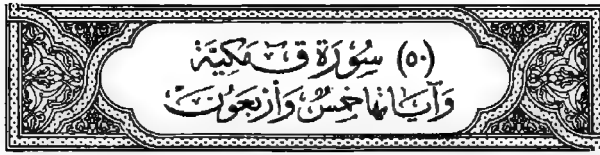 (٥٠) سُورَة قۤ مَكِيَّة
وَآيَانهَا خَمْسٌ وَأَرْبَعُونَ